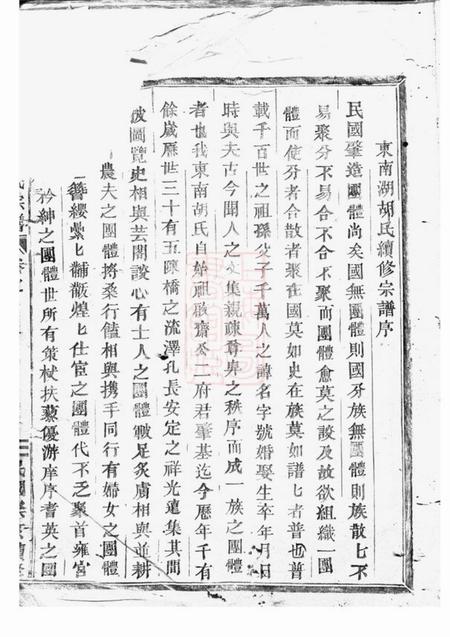 東南湖胡氏續修宗譜序
民國肇造團體尚矣國無團體則國分族無團體則族散匕不
易聚分不易合不合不聚而團體愈莫之設及故欲組織一團
體而使分者合散者聚在國莫如史在族莫如譜匕者普也普
載千百世之祖孫父子千萬人之諱名字號婚娶生卒年月日
時與夫古今聞人之文集親疎尊卑之秩序而成一族之團體
者也我東南胡氏自始祖啟齋公二府君肇基迄今歷年千有
餘歲歷世三十有五陳橋之流澤孔長安定之祥光遠集其間
披圖覽史相與芸閣談心有士人之團體戢足炙膚相與並耕
農夫之團體搚桑行饁相與携手同行有婦女之團體
簪纓纍匕黼黻煌匕仕宦之團體代不乏聚首雍宮
矜紳之團體世所有策杖扶藜優游庠序耆英之團